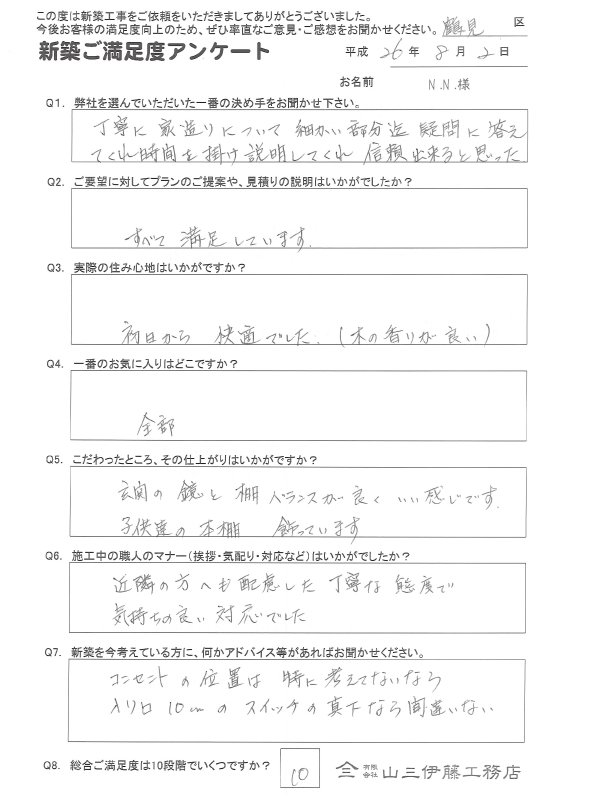 この度は新築工事をご依頼をいただきましてありがとうございました。
今後お客様の満足度向上のため、ぜひ率直なご意見・ご感想をお聞かせください。 鶴見 区
新築ご満足度アンケート 平成 26 年 8 月 2 日
お名前 N.N.様
Q1. 弊社を選んでいただいた一番の決め手をお聞かせ下さい。
丁寧に 家造りについて 細かい部分迄 疑問に答え
てくれ時間を掛け説明してくれ 信頼出来ると思った
Q2. ご要望に対してプランのご提案や、見積りの説明はいかがでしたか？
すべて 満足しています.
Q3. 実際の住み心地はいかがですか？
初日から 快適でした. (木の香りが良い)
Q4. 一番のお気に入りはどこですか？
全部
Q5. こだわったところ、その仕上がりはいかがですか？
玄関の 鏡と 棚 バランスが良く いい感じです.
子供達の 本棚 飾っています
Q6. 施工中の職人のマナー（挨拶・気配り・対応など）はいかがでしたか？
近隣の方へも配慮した 丁寧な 態度で
気持ちの良い 対応でした
Q7. 新築を今考えている方に、何かアドバイス等があればお聞かせください。
コンセントの 位置は 特に考えてないなら
入り口 10cmの スイッチの真下なら間違いない
Q8. 総合ご満足度は10段階でいくつですか？ 10 有限会社 山三伊藤工務店